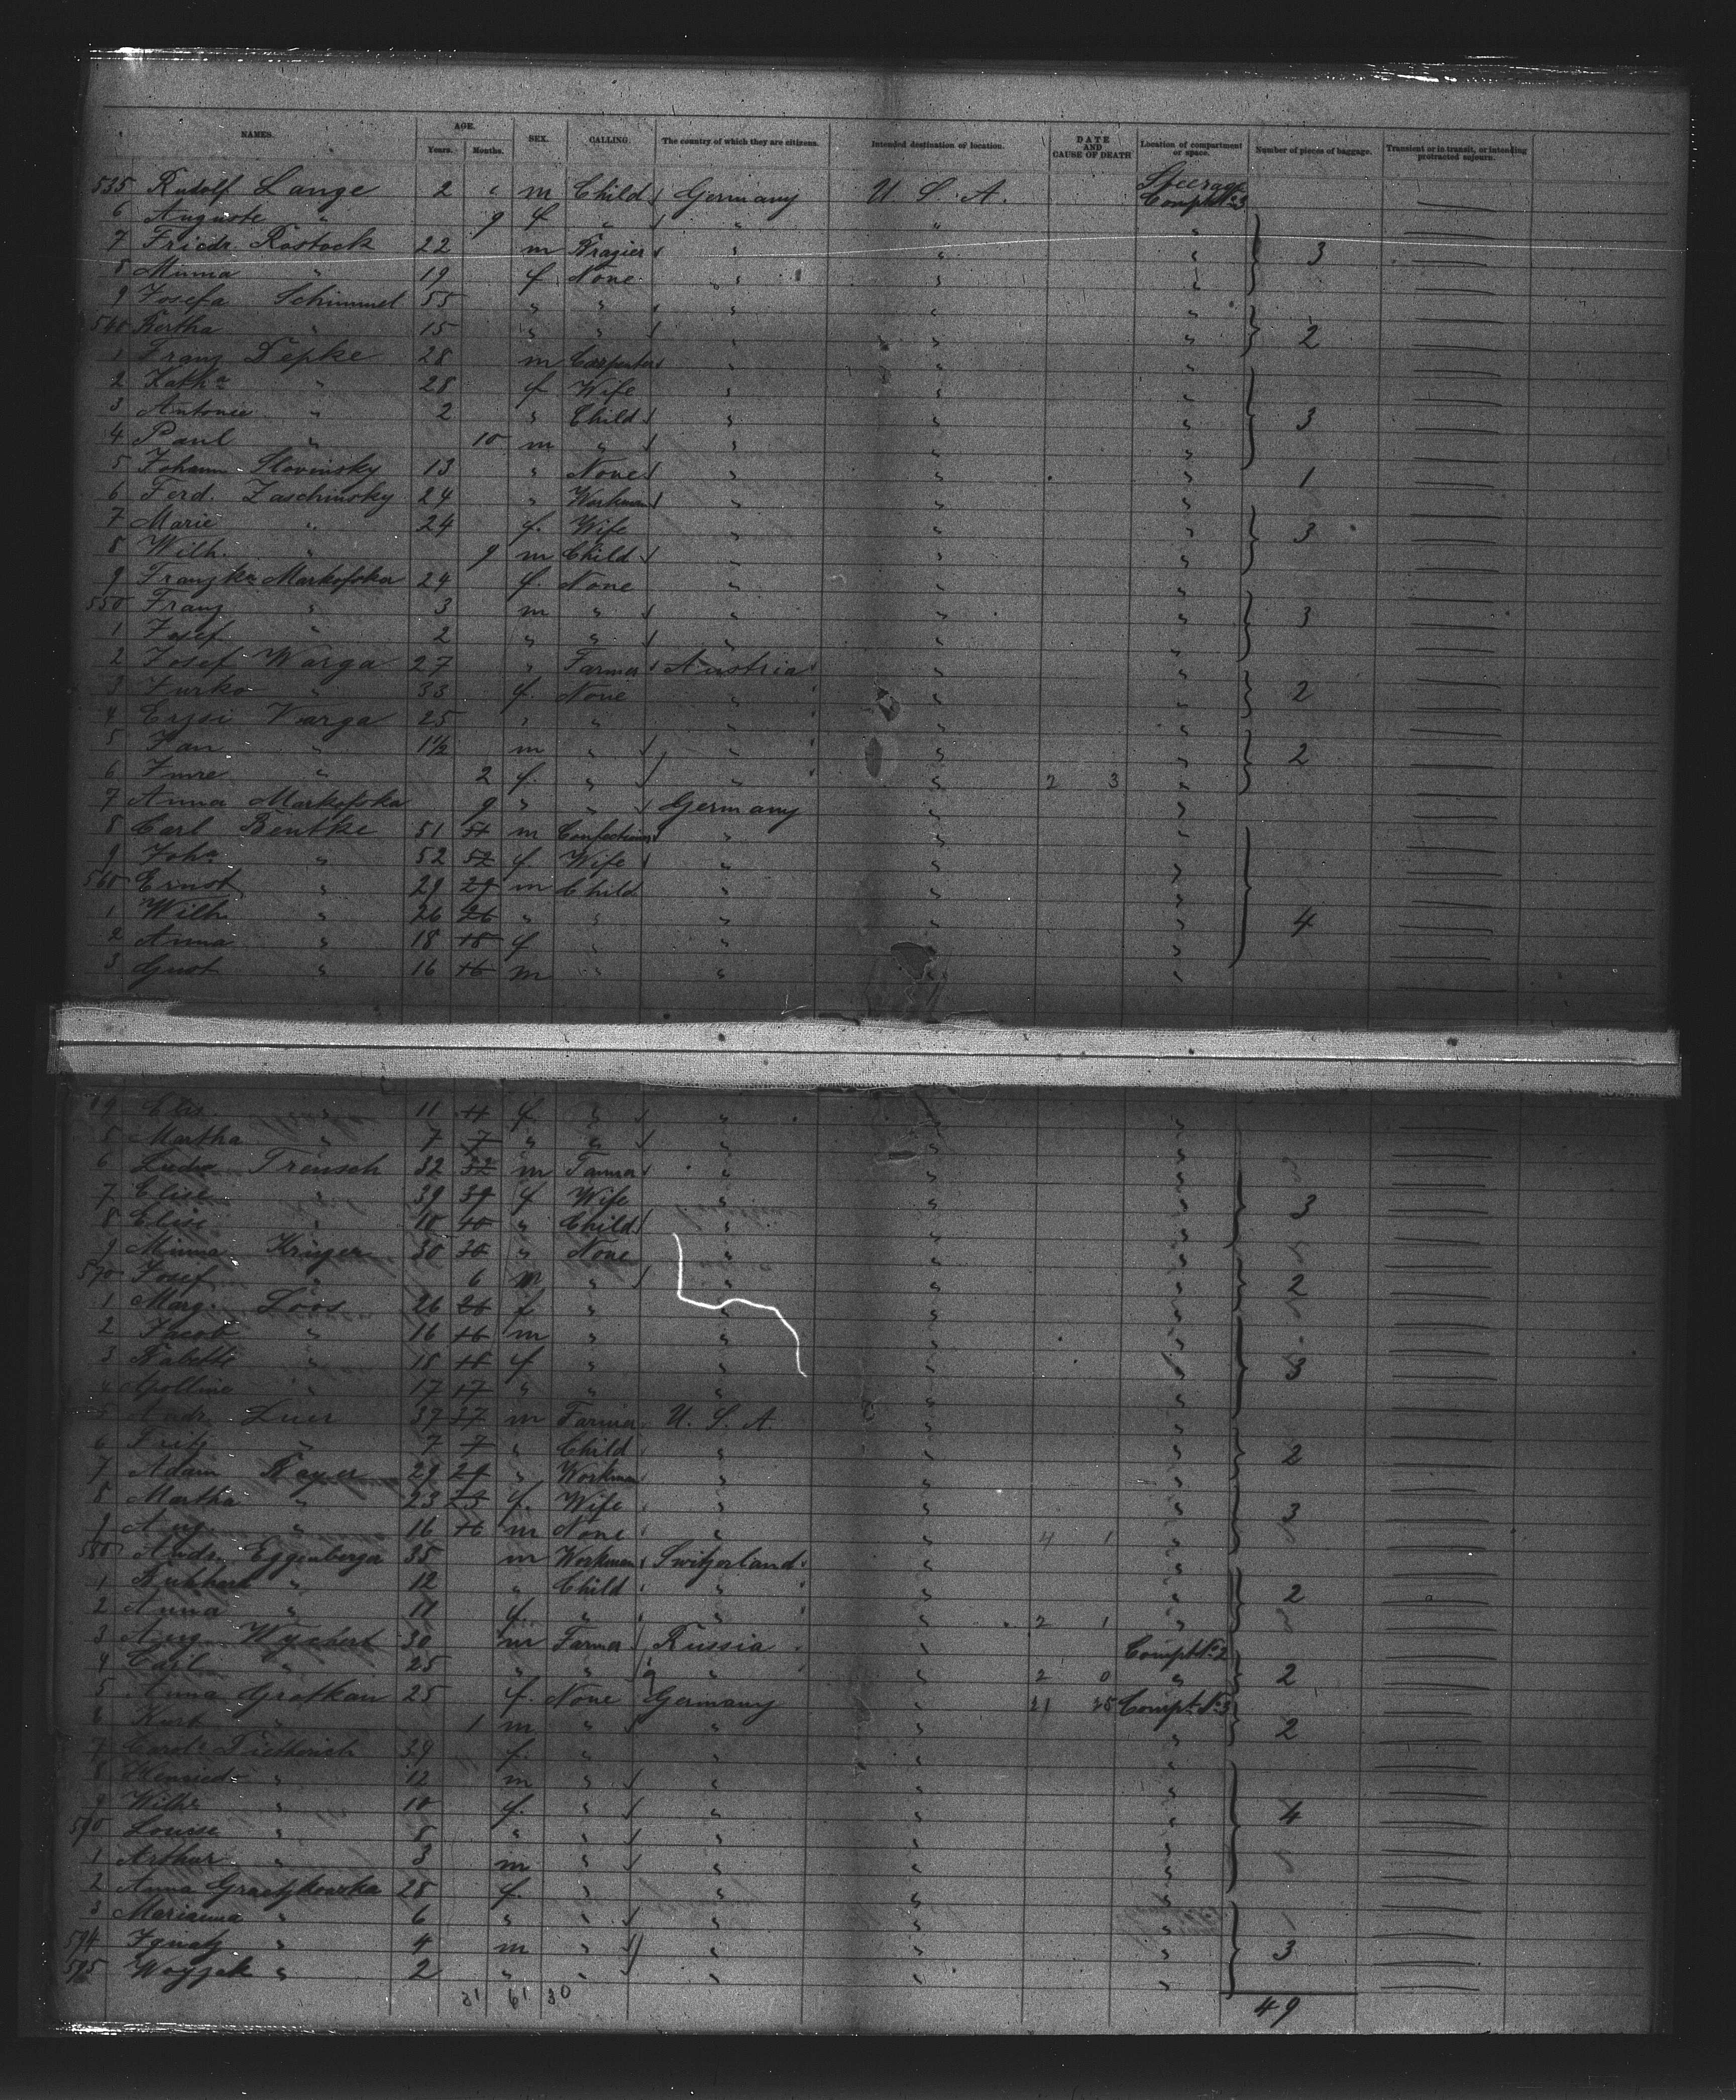 NAMES. AGE. Years. Months. SEX. CALLING. The country of which they are citizens. Intended destination or location. DATE AND CAUSE OF DEATH Location of compartment or space. Number of pieces of baggage. Transient or in transit, or intending protracted sojourn.
535 Rudolf Lange 2 " m Child Germany U. S. A. Steerage Compt No 3
6 Auguste " 9 f " " " "
7 Friedr. Rostock 22 m " " " 3
8 Minna " 19 f None " " "
9 Josefa Schimmel 55 " " " " "
540 Bertha " 15 " " " " " 2
1 Franz Depke 28 m Carpenter " " "
2 Kath " 28 f Wife " " "
3 Antonie " 2 " Child " " " 3
4 Paul " 10 m " " " "
5 Johann Slovinsky 13 " None " " " 1
6 Ferd. Zaschinsky 24 " Workman " " "
7 Marie " 24 f. Wife " " " 3
8 Wilh. " 9 m Child " " "
9 Franzka Markofska 24 f. None " " "
550 Franz " 3 m " " " " 3
1 Josef " 2 " " " " "
2 Josef Warga 27 " Farmer Austria " "
3 " 33 f. None " " " 2
4 Varga 25 " " " " "
5 Jan " 1½ m " " " " 2
6 Imre " 2 f. " " " 2 3 "
7 Anna Markofska 9 " " Germany " "
8 Carl Bentke 51 51 m " " "
9 Joh " 52 52 f. Wife " " "
560 Ernst " 29 29 m Child " " "
1 Wilh " 26 26 " " " " " 4
2 Anna " 18 18 f " " " "
3 " 16 16 m " " " "
4 Elis. " 11 11 f " " " "
5 Martha " 7 7 " " " " "
6 Ludw. Trensch 32 32 m Farmer " " "
7 Elise " 39 39 f Wife " " " 3
8 Elise " 10 10 " Child " " "
9 Minna Kruger 30 30 " None " " "
570 Josef " 6 m " " " " 2
1 Marg. Loos 26 26 f " " " "
2 Jacob " 16 16 m " " " "
3 Babette " 18 18 f " " " " 3
4 " 17 17 " " " " "
5 Andr. 37 37 m Farmer U. S. A. " "
6 Fritz " 7 7 " Child " " " 2
7 Adam 29 29 " Workman " " "
8 Martha " 23 23 f. Wife " " " 3
9 Aug. " 16 16 m None " " 4 1 "
580 Andr. Eggenberger 35 m Workman Switzerland " "
1 " 12 " Child " " " 2
2 Anna " 11 f. " " " 2 1 "
3 Aug. Wychert 30 m Farmer Russia " Compt No 2
4 Carl " 25 " " " " 2 0 " 2
5 Anna Grotkau 25 f. None Germany Compt. No 3
6 Kurt " 1 m " " " " 2
7 39 f. " " " "
8 " 12 m " " " "
9 Wilh " 10 f. " " " " 4
590 Louise " 8 " " " " "
1 Arthur " 3 m " " " "
2 Anna 28 f. " " " "
3 Marianna " 6 " " " " "
594 Ignatz " 4 m " " " " 3
595 " 2 " " " " "
31 61 30 49